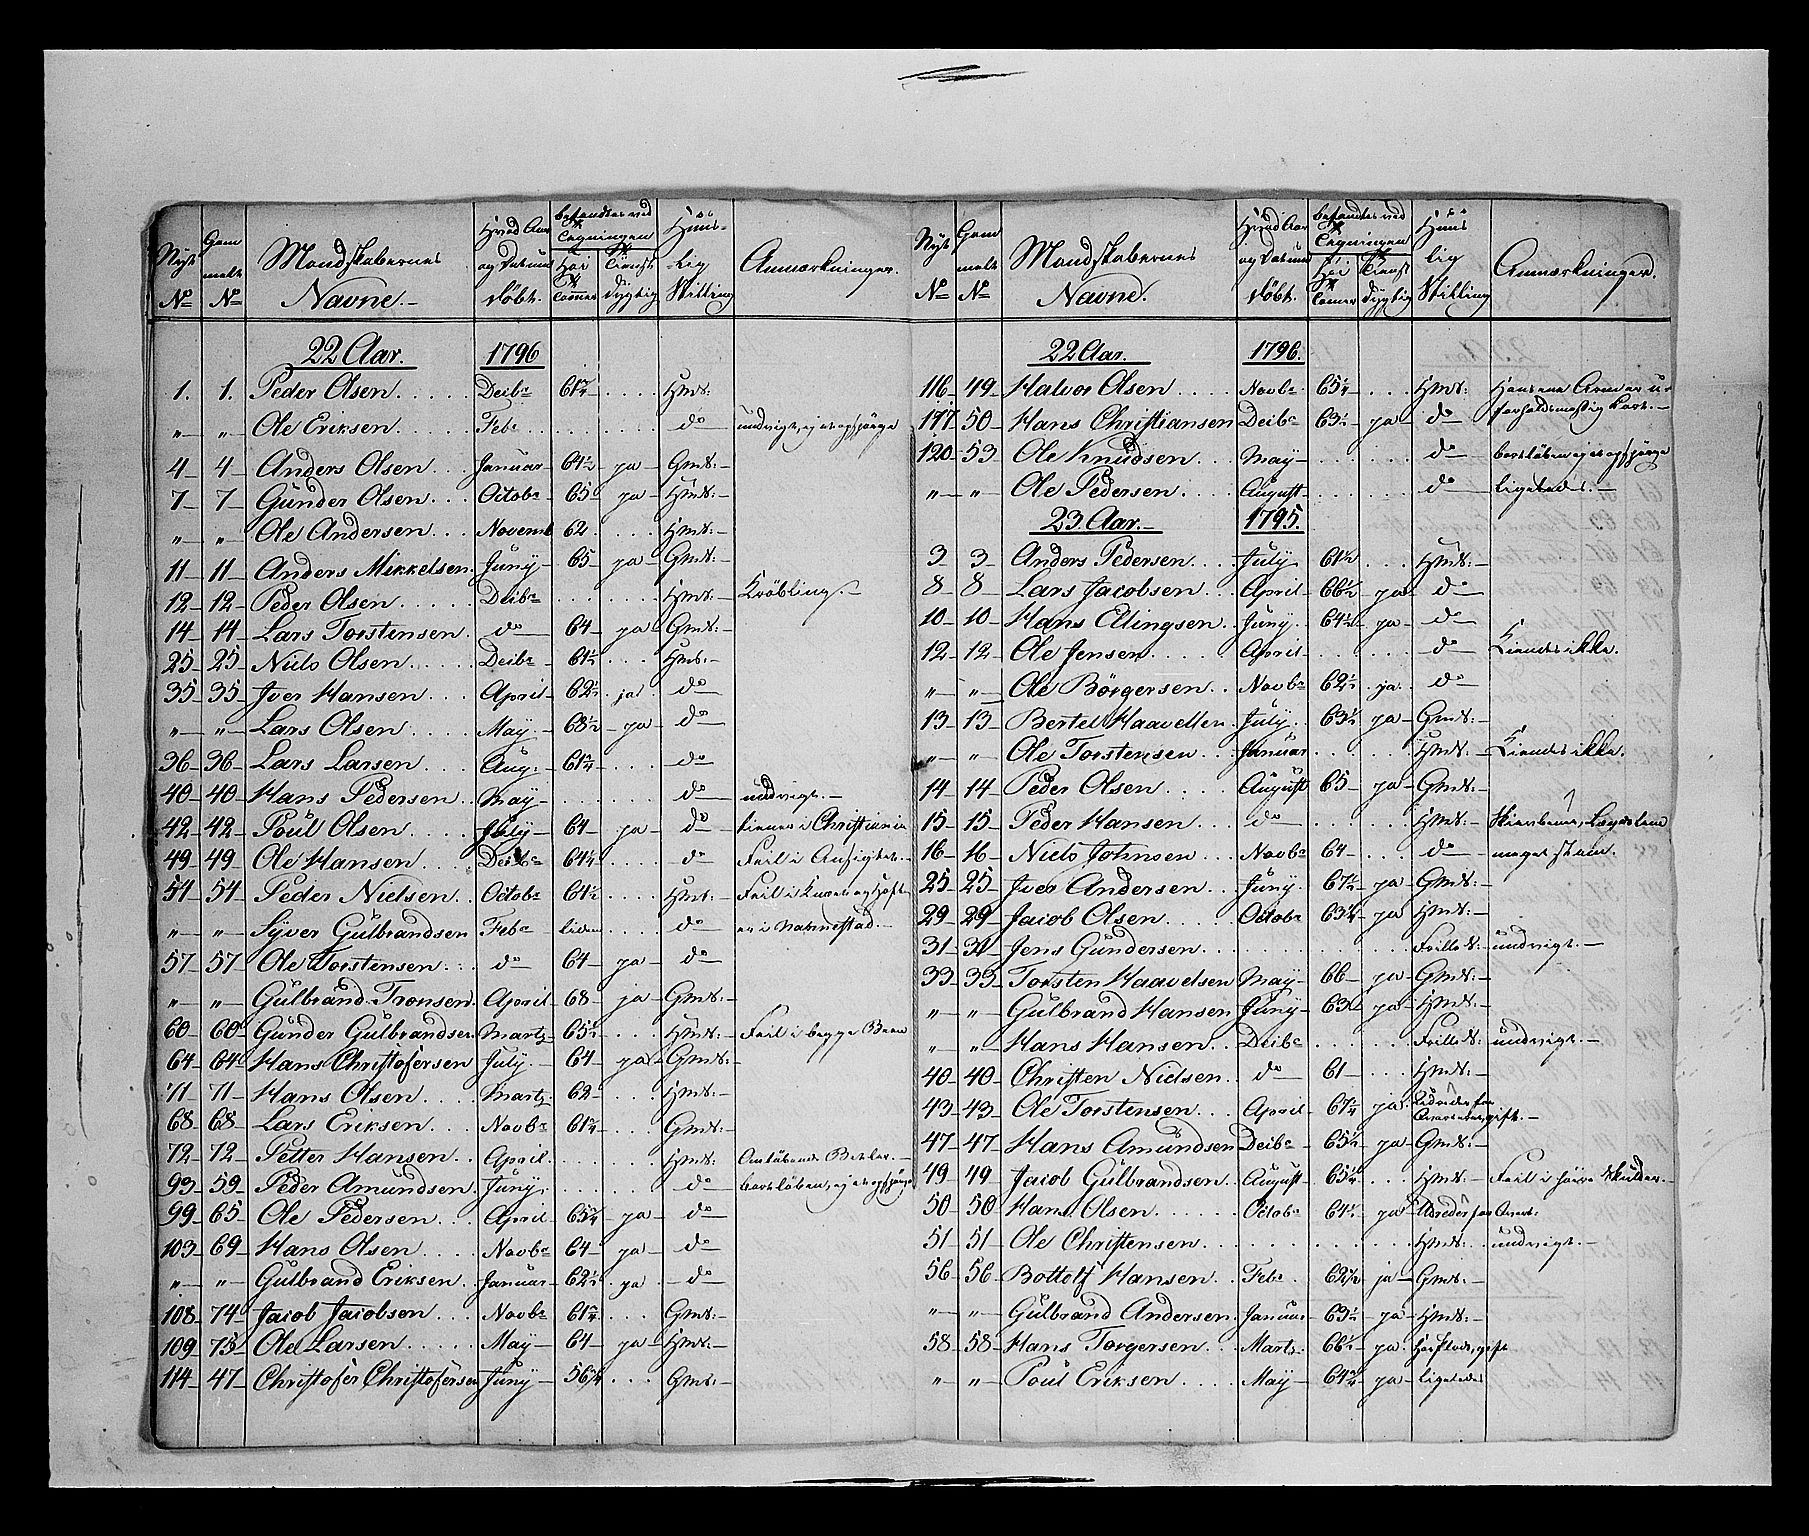 Nyt No | Gam melt No | Mandskabernes Navne. | Hvad Aar og Datum döbt. | befandtes ved Sx Tegningen: Höi Tommer | Tienst dygtig | Huus- lig Stilling | Anmærkninger.
22 Aar. | 1796
1. 1. Peder Olsen..... Decbr 61¾ .... Hmd:
" " Ole Eriksen.... Febr .... do undvigt, ej at opspörge
4 4 Anders Olsen... Januar 64½ ja Gmd:
7 7 Gunder Olsen... Octobr 65 ja Hmd:
" " Ole Andersen... Novemb 62 .... Hmd:
11 11 Anders Mikkelsen. Juny 65 ja Gmd:
12 12 Peder Olsen..... Decbr .... Hmd: Kröbling.
14 14 Lars Torstensen. do 64 ja Gmd:
25 25 Niels Olsen..... Decbr 61½ ... Hmd:
35 35 Iver Hansen.... April 62½ ja. do
" " Lars Olsen..... May. 68½ ja do
36 36 Lars Larsen.... Aug. 61¾ .... do
40 40 Hans Pedersen.. May .... do undvigt.
42 42 Poul Olsen.... July 64 ja do tiener i Christiania
49 49 Ole Hansen.... Decbr 64¼ .... do Feil i Ansigtet.
54 54 Peder Nielsen.. Octobr 61½ .... Hmd: Feil i Knæet og Hoft
" " Syver Gulbrandsen Febr liden do er i
57 57 Ole Torstensen... do 64 ja do
" " Gulbrand Tronsen. April 68 ja Gmd:
60 60 Gunder Gulbrandsen Marts 65½ ... Hmd: Feil i begge Been
64 64 Hans Christofersen July 64 ja Gmd:
71 71 Hans Olsen.... Marts 62 ... Hmd:
68 68 Lars Eriksen... Novbr 61¾ .... Gmd:
72 72 Petter Hansen.. April. .... Hmd: Omlöbende Betler.
93 59 Peder Amundsen. Juny. .... do bortlöben, ej at opspörge
99 65 Ole Pedersen... April 65¾ ja do
103 69 Hans Olsen.... Novbr 64 ja do
" " Gulbrand Eriksen. Januar 62½ ja do
108 74 Jacob Jacobsen... Novbr 61¾ ... Gmd:
109 75 Ole Larsen..... May 64 ja Hmd:
114 47 Christofer Christofersen Juny 56¾ ... Gmd:
Nyt No | Gam melt No | Mandskabernes Navne. | Hvad Aar og Datum döbt. | befandtes ved Sx Tegningen: Höi Tomer | Tienst dygtig | Huus lig Stilling | Anmærkninger.
22 Aar. | 1796.
116 49 Halvor Olsen.... Novbr 65¼ .... Hmd: Hans ene Arm er u-
117 50 Hans Christiansen Decbr 63½ ja do forholdsmæssig kort.
120 53 Ole Knudsen... May .... do bortlöben ej at opspörge
" " Ole Pedersen... August .... do ligeledes.
23 Aar. | 1795.
3 3 Anders Pedersen... July. 61½ ... Hmd:
8 8 Lars Jacobsen... April 66½ ja do
10 10 Hans Ellingsen.. Juny 64½ ja do
12 12 Ole Jensen.... April .... do Kiendes ikke.
" " Ole Börgersen.. Novbr 62½ ja. do
13 13 Bertel Haavelsen. July. 63½ ja Gmd:
" " Ole Torstensen... Januar .... Hmd: Kiendes ikke.
14 14 Peder Olsen.... August 65 ja Gmd:
15 15 Peder Hansen.... do .... Hmd:
16 16 Niels Johnsen... Novbr 64 ... do meget stam.
25 25 Iver Andersen... Juny. 67½ ja Gmd:
29 29 Jacob Olsen.... Octobr 63¼ ja Hmd:
31 31 Jens Gundersen. .... undvigt.
33 33 Torsten Haavelsen May 66 ja Gmd:
" " Gulbrand Hansen Juny 63½ ja Hmd:
" " Hans Hansen.. Decbr .... undvigt.
40 40 Christen Nielsen.. do 61 ... Hmd:
43 43 Ole Torstensen... April 67¼ ja. Udreder for Qvarteer, gift.
47 47 Hans Amundsen Decbr 65½ ja Gmd:
49 49 Jacob Gulbrandsen. August 65¼ ... Hmd: Feil i höire Skulder.
50 50 Hans Olsen...... Octobr 64½ ja Udreder for
51 51 Ole Christensen...... Hmd: undvigt.
56 56 Bottolf Hansen.. Febr. 62½ ja Gmd:
" " Gulbrand Andersen. Januar 63½ ja Hmd:
58 58 Hans Torgersen.. Marts. 66½ ja. gift
" " Poul Eriksen.... May 64¾ ja ligeledes